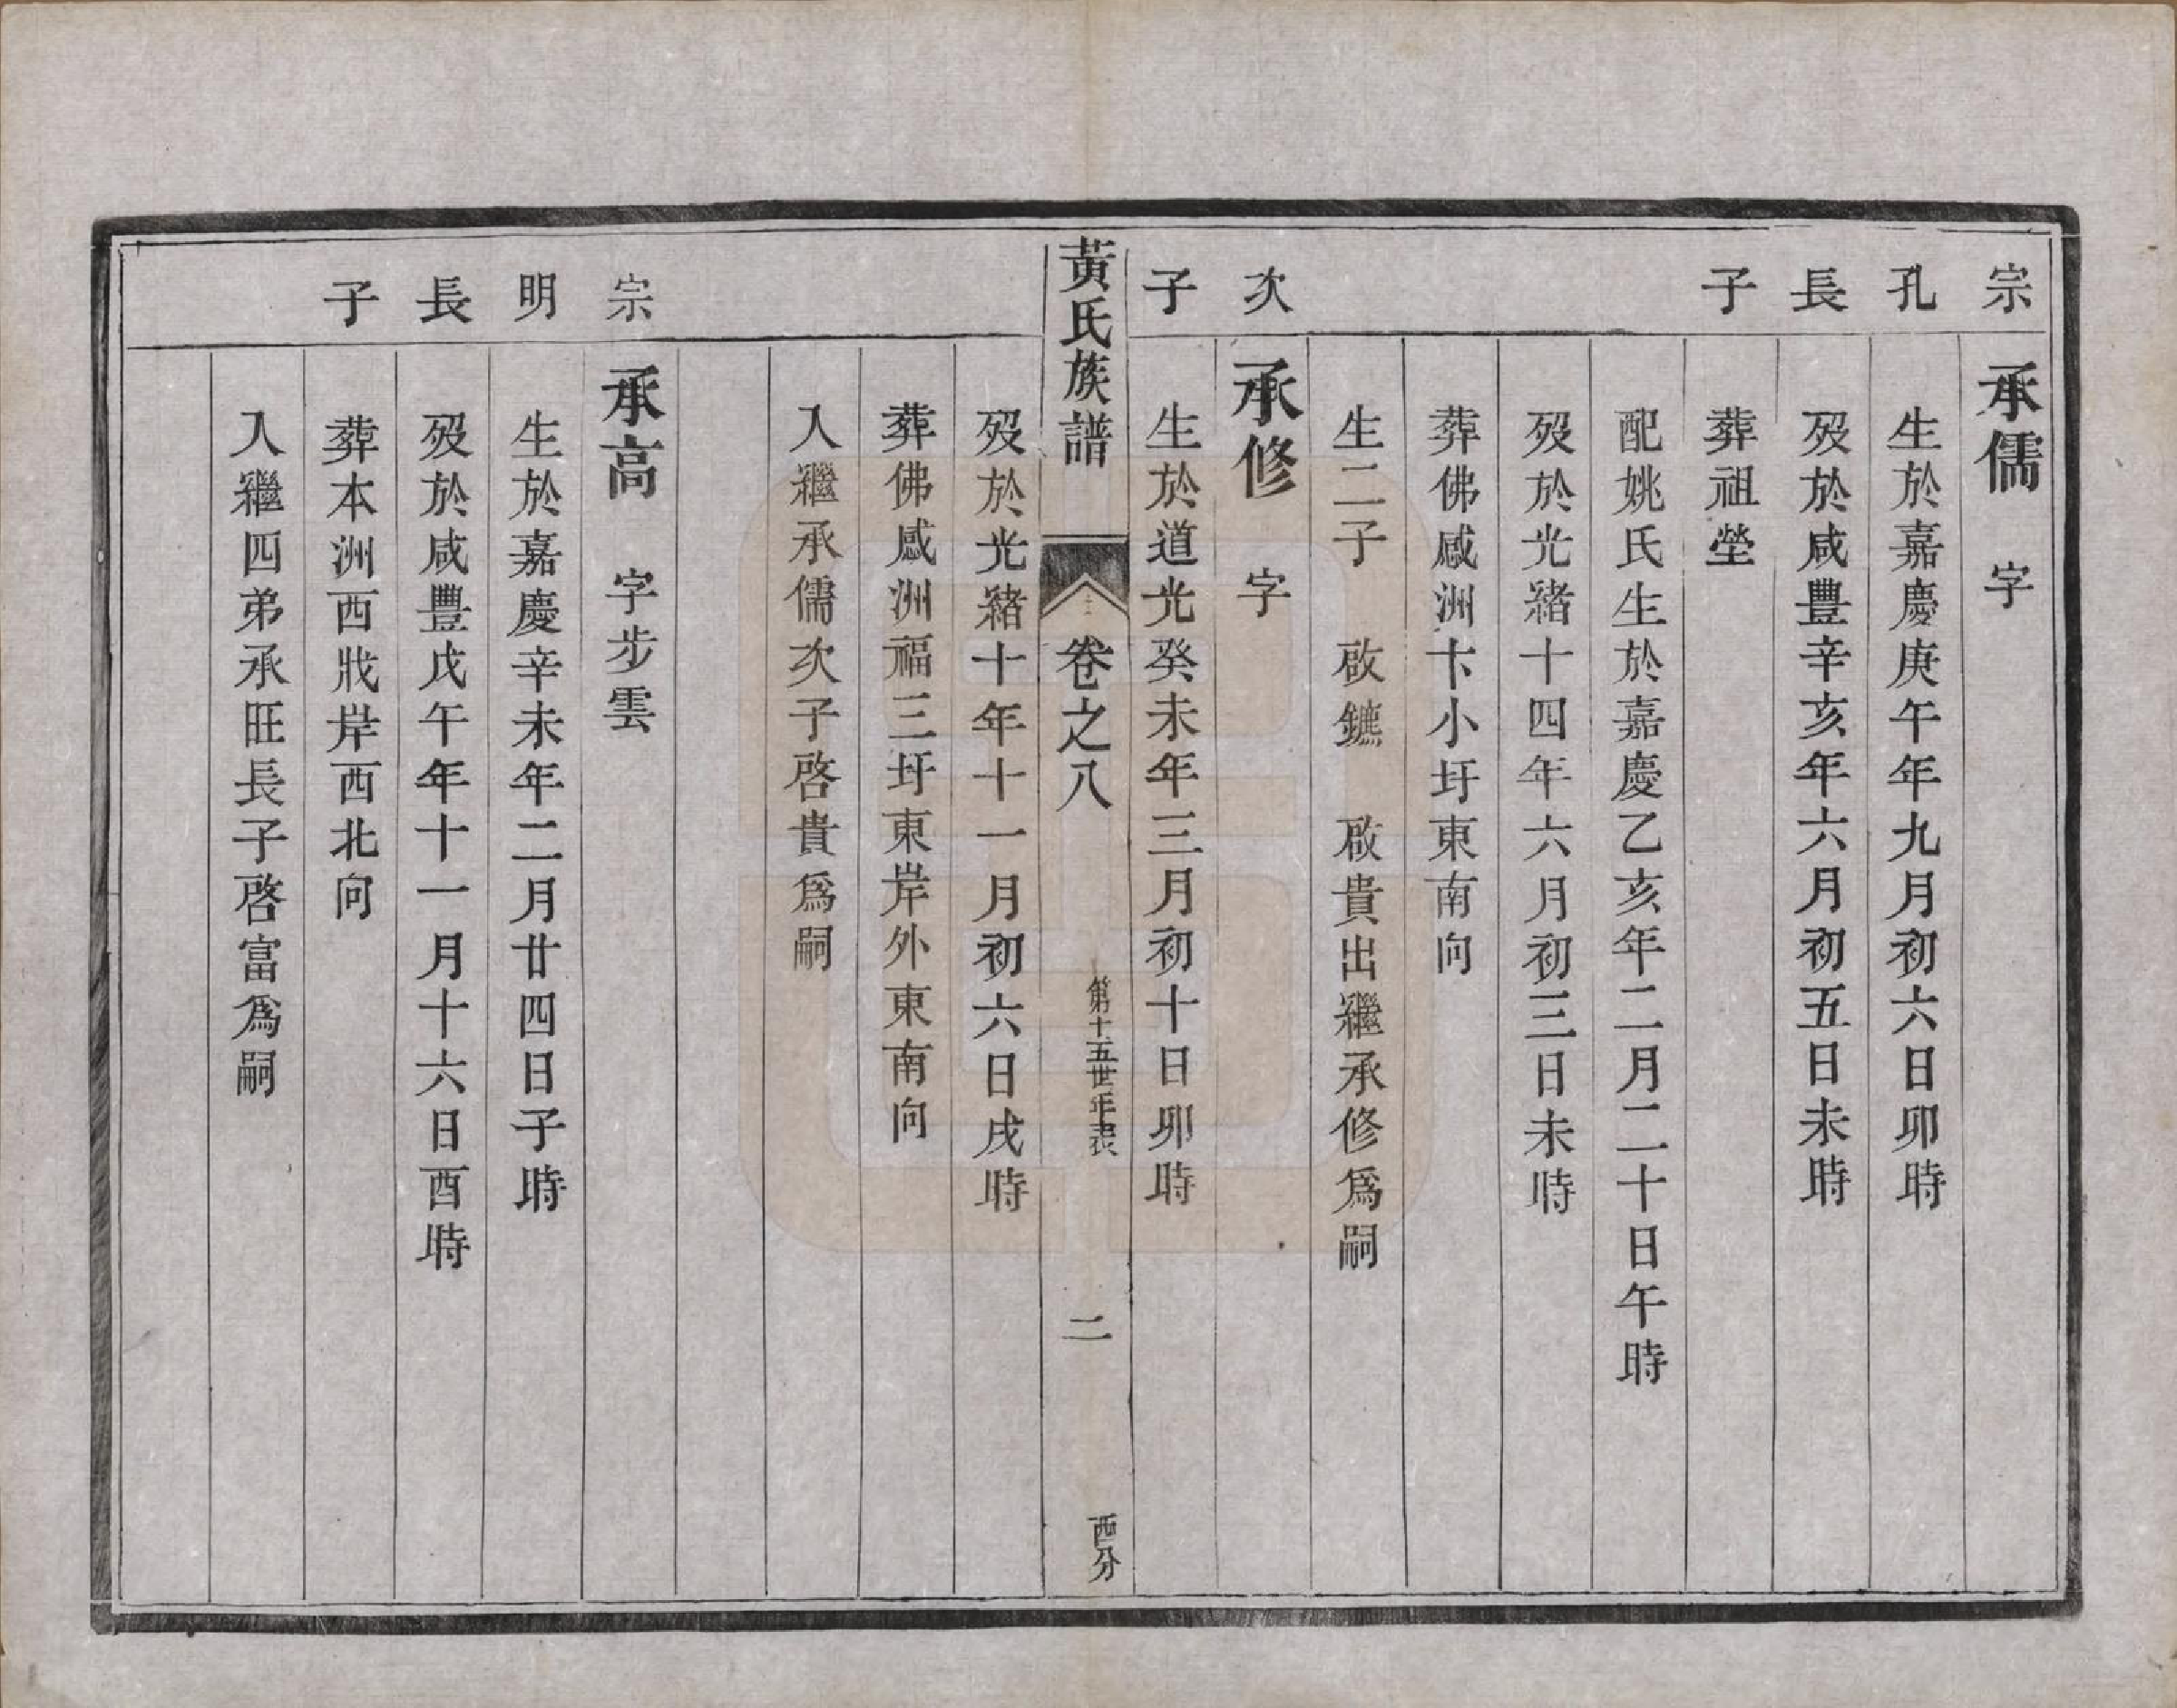 宗孔長子
承儒　字
生於嘉慶庚午年九月初六日卯時
歿於咸豐辛亥年六月初五日未時
葬祖塋
配姚氏生於嘉慶乙亥年二月二十日午時
歿於光緒十四年六月初三日未時
葬佛感洲卞小圩東南向
生二子　啟鑣　啟貴出繼承修爲嗣
次子
承修　字
生於道光癸未年三月初十日卯時
黃氏族譜　卷之八　第十五世年表　二　西分
歿於光緒十年十一月初六日戌時
葬佛感洲福三圩東岸外東南向
入繼承儒次子啓貴爲嗣
宗明長子
承高　字步雲
生於嘉慶辛未年二月廿四日子時
歿於咸豐戊午年十一月十六日酉時
葬本洲西戕岸西北向
入繼四弟承旺長子啓富爲嗣